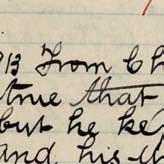 913 From Ch
true that
but he ke
and his